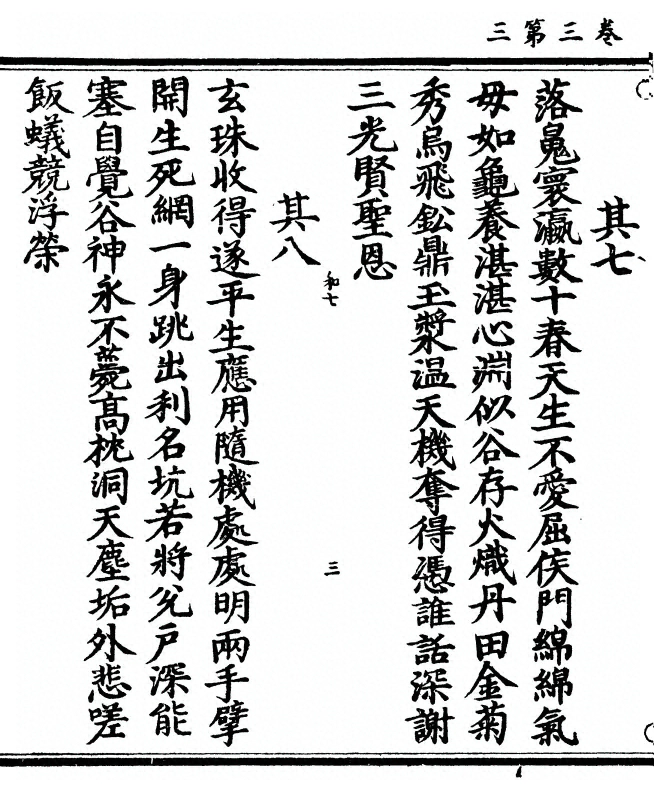 卷三第三
其七
落魄寰瀛數十春天生不愛屈侯門綿綿氣
毋如龜養湛湛心淵似谷存火熾丹田金菊
秀烏飛鈆鼎玉漿温天機奪得憑誰話深謝
三光賢聖恩
和七
三
其八
玄珠收得遂平生應用隨機處處明兩手擘
開生死網一身跳出利名坑若將兊戶深能
塞自覺谷神永不薨高枕洞天塵垢外悲嗟
飯蟻競浮榮